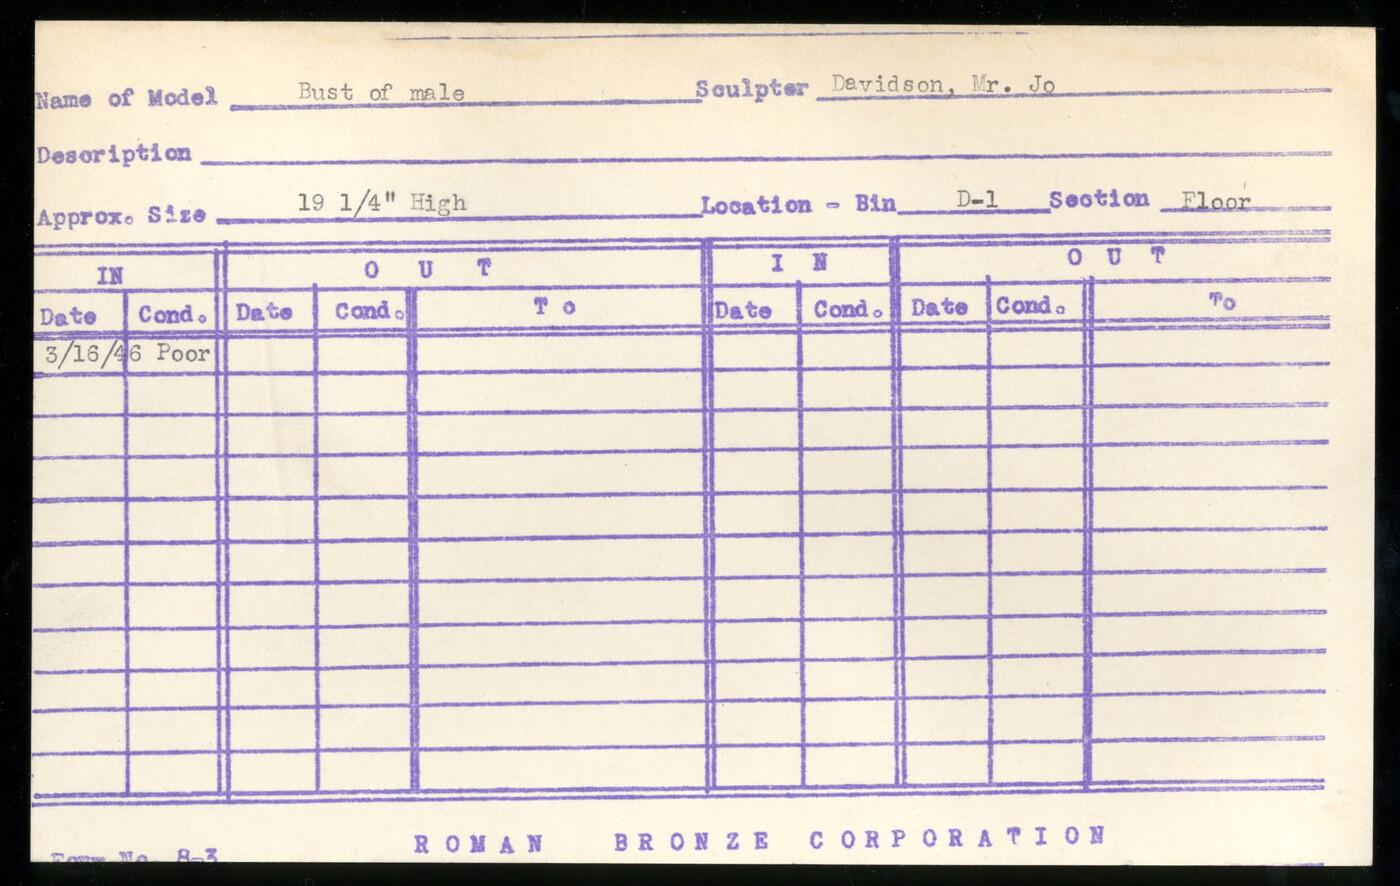 Name of Model Bust of male Sculpter Davidson, Mr. Jo
Description
Approx. Size 19 1/4" High Location - Bin D-1 Section Floor
IN O U T I N O U T
Date Cond. Date Cond. T O Date Cond. Date Cond. To
3/16/46 Poor
ROMAN BRONZE CORPORATION
Form No. 8-3